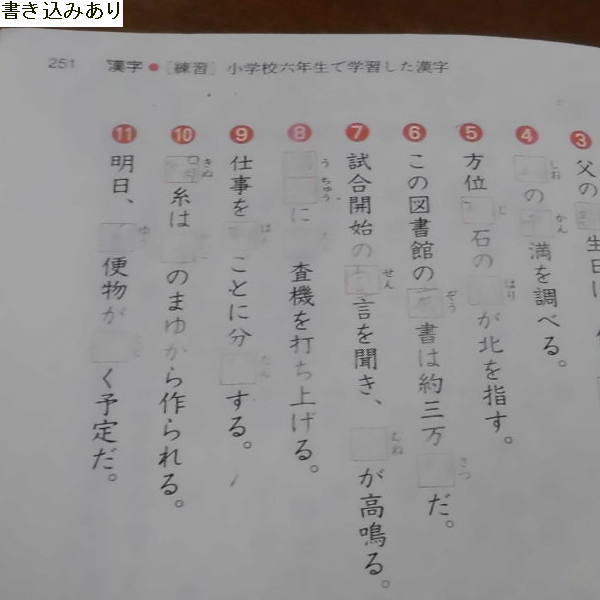 書き込みあり
251 漢字 ● [練習] 小学校六年生で学習した漢字
3 父の□生日に
4 □(しお)の□(かん)満を調べる。
5 方位□(じ)石の□(はり)が北を指す。
6 この図書館の□(ぞう)書は約三万□(さつ)だ。
7 試合開始の□(せん)言を聞き、□(むね)が高鳴る。
8 □□(うちゅう)に□査機を打ち上げる。
9 仕事を□(はん)ことに分□(たん)する。
10 □(きぬ)糸は□のまゆから作られる。
11 明日、□(ゆう)便物が□く予定だ。